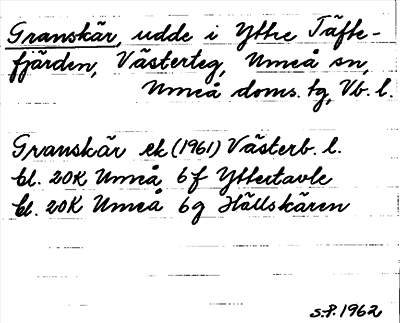 Granskär, udde i Yttre Täfte-
fjärden, Västerteg, Umeå sn,
Umeå doms. tg, Vb. l.
Granskär ek (1961) Västerb. l.
bl. 20K Umeå 6f Yttertavle
bl. 20K Umeå 6g Hällskären
S.P. 1962